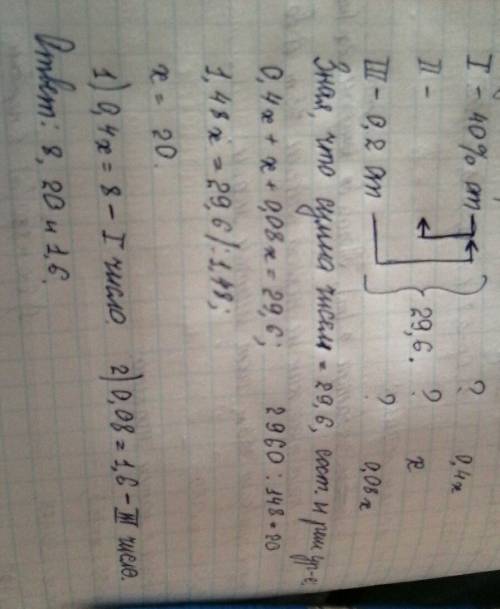 I - 40% от ? 0,4x
II - 29,6. ? x
III - 0,2 от ? 0,08x
Зная, что сумма чисел = 29,6, сост. и реш. ур-е:
0,4x + x + 0,08x = 29,6; 2960 : 148 = 20
1,48x = 29,6 | : 1,48;
x = 20.
1) 0,4x = 8 - I число. 2) 0,08 = 1,6 - III число.
Ответ: 8, 20 и 1,6.